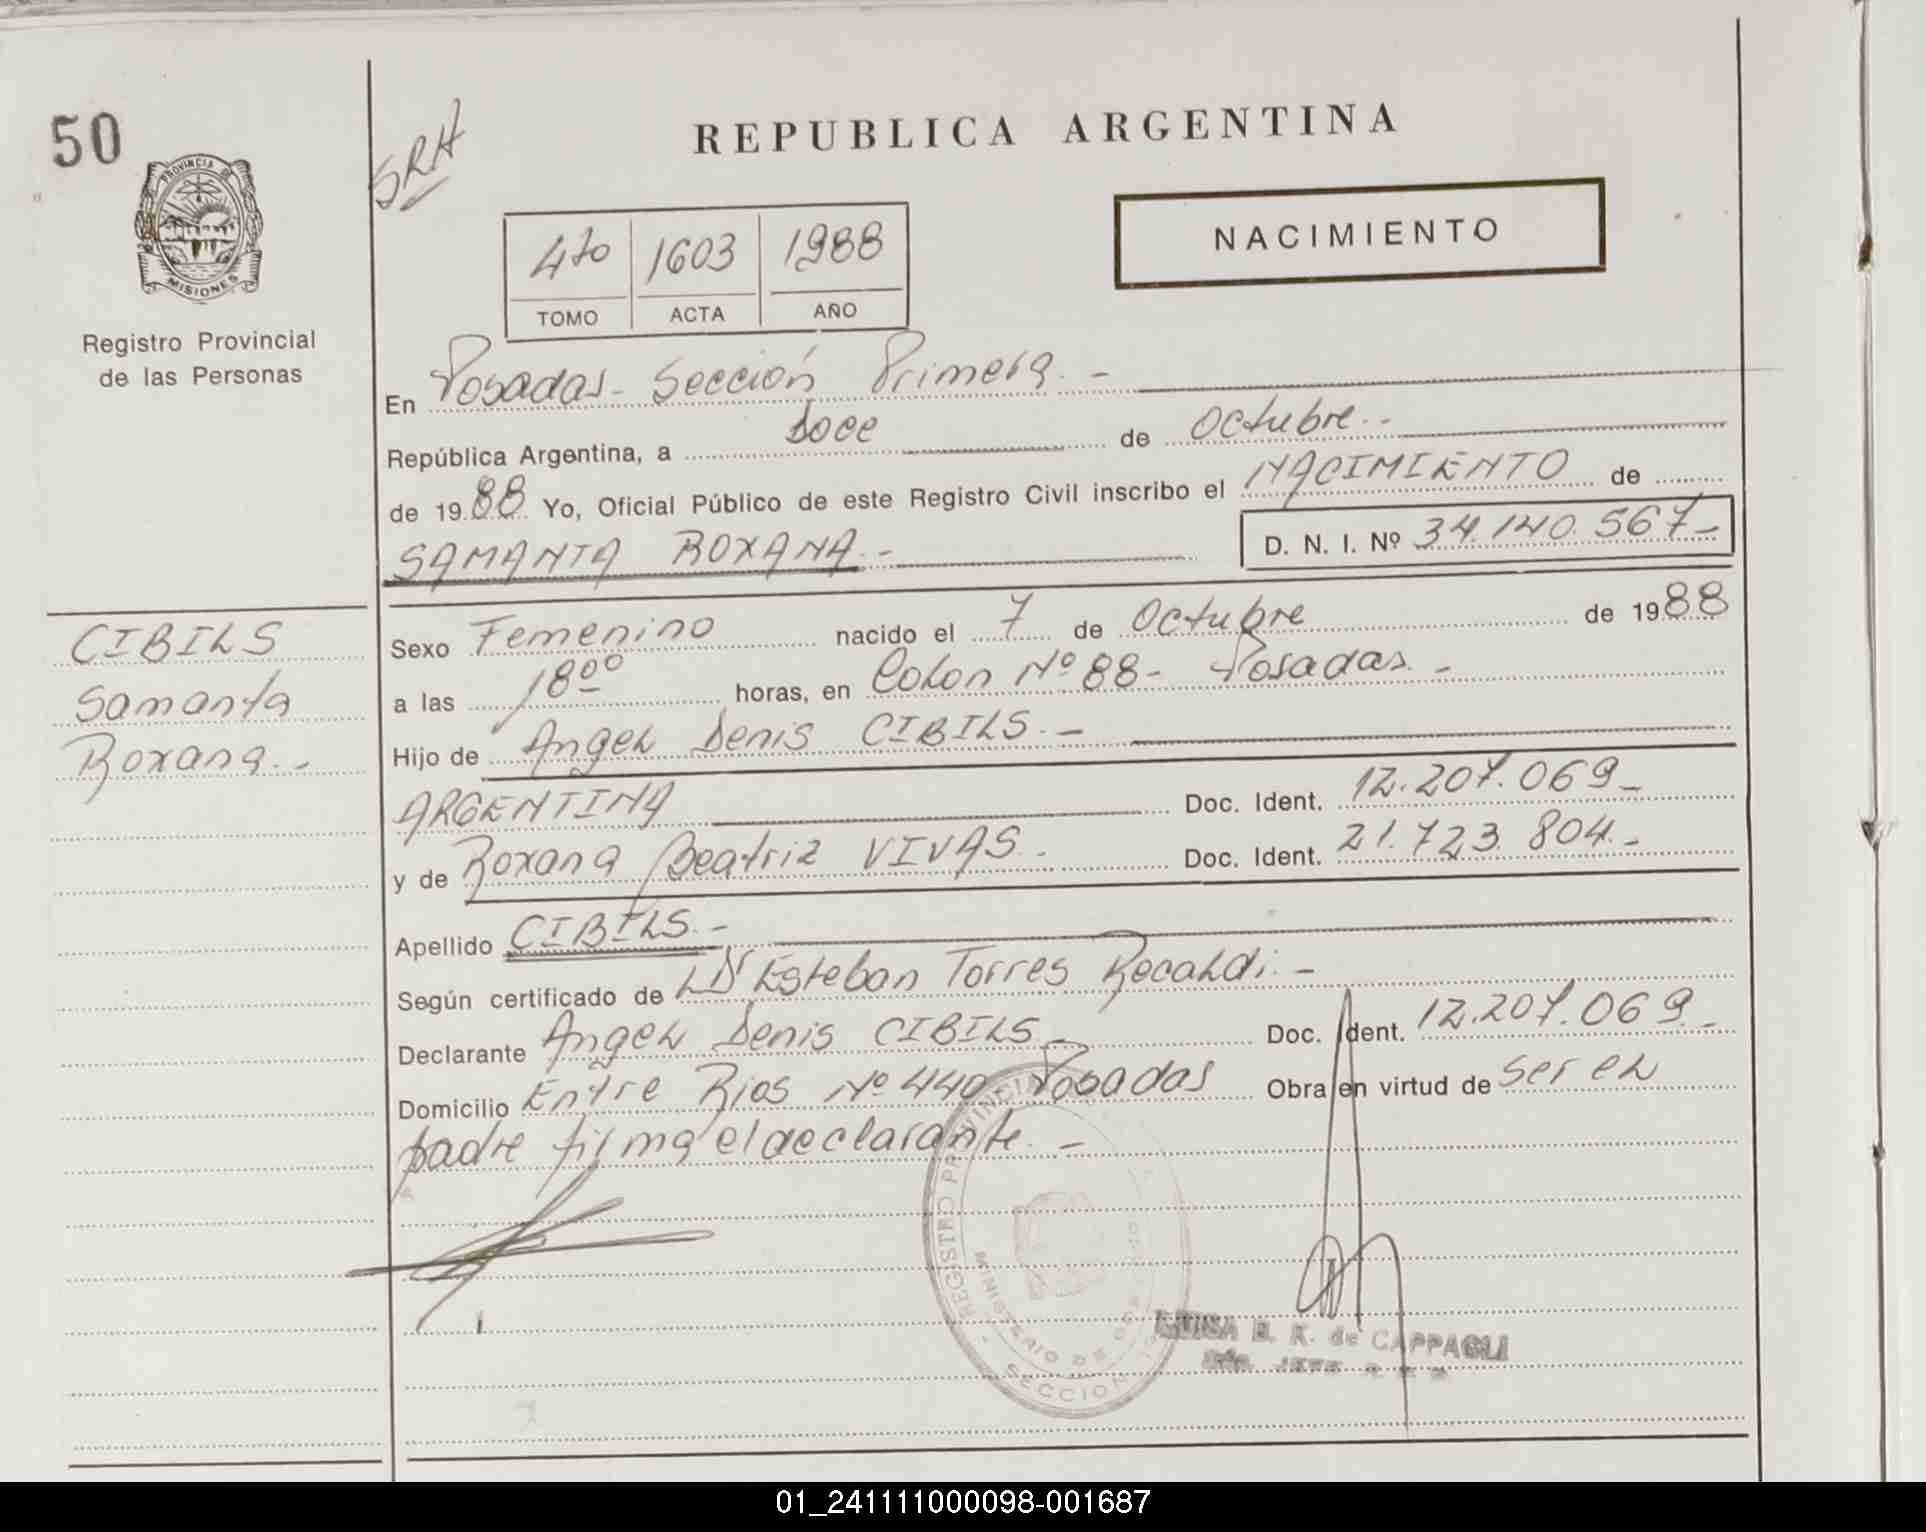 50
PROVINCIA DE
MISIONES
Registro Provincial
de las Personas
SRH
REPUBLICA ARGENTINA
NACIMIENTO
4to 1603 1988
TOMO ACTA AÑO
En Posadas - Sección Primera. -
República Argentina, a doce de Octubre. -
de 1988 Yo, Oficial Público de este Registro Civil inscribo el NACIMIENTO de
SAMANTA ROXANA. - D. N. I. Nº 34.140.567 -
CIBILS
Samanta
Roxana. -
Sexo Femenino nacido el 7 de Octubre de 1988
a las 18oo horas, en Colon Nº 88 - Posadas. -
Hijo de Angel Denis CIBILS. -
ARGENTINA Doc. Ident. 12.207.069 -
y de Roxana Beatriz VIVAS. Doc. Ident. 21.723.804. -
Apellido CIBILS. -
Según certificado de Dr Esteban Torres Recaldi. -
Declarante Angel Denis CIBILS. Doc. Ident. 12.207.069. -
Domicilio Entre Rios Nº 440 Posadas Obra en virtud de ser el
padre firma el declarante. -
REGISTRO PROVINCIAL
MINISTERIO DE
SECCION
LUISA B. R. de CAPPAGLI
01_241111000098-001687